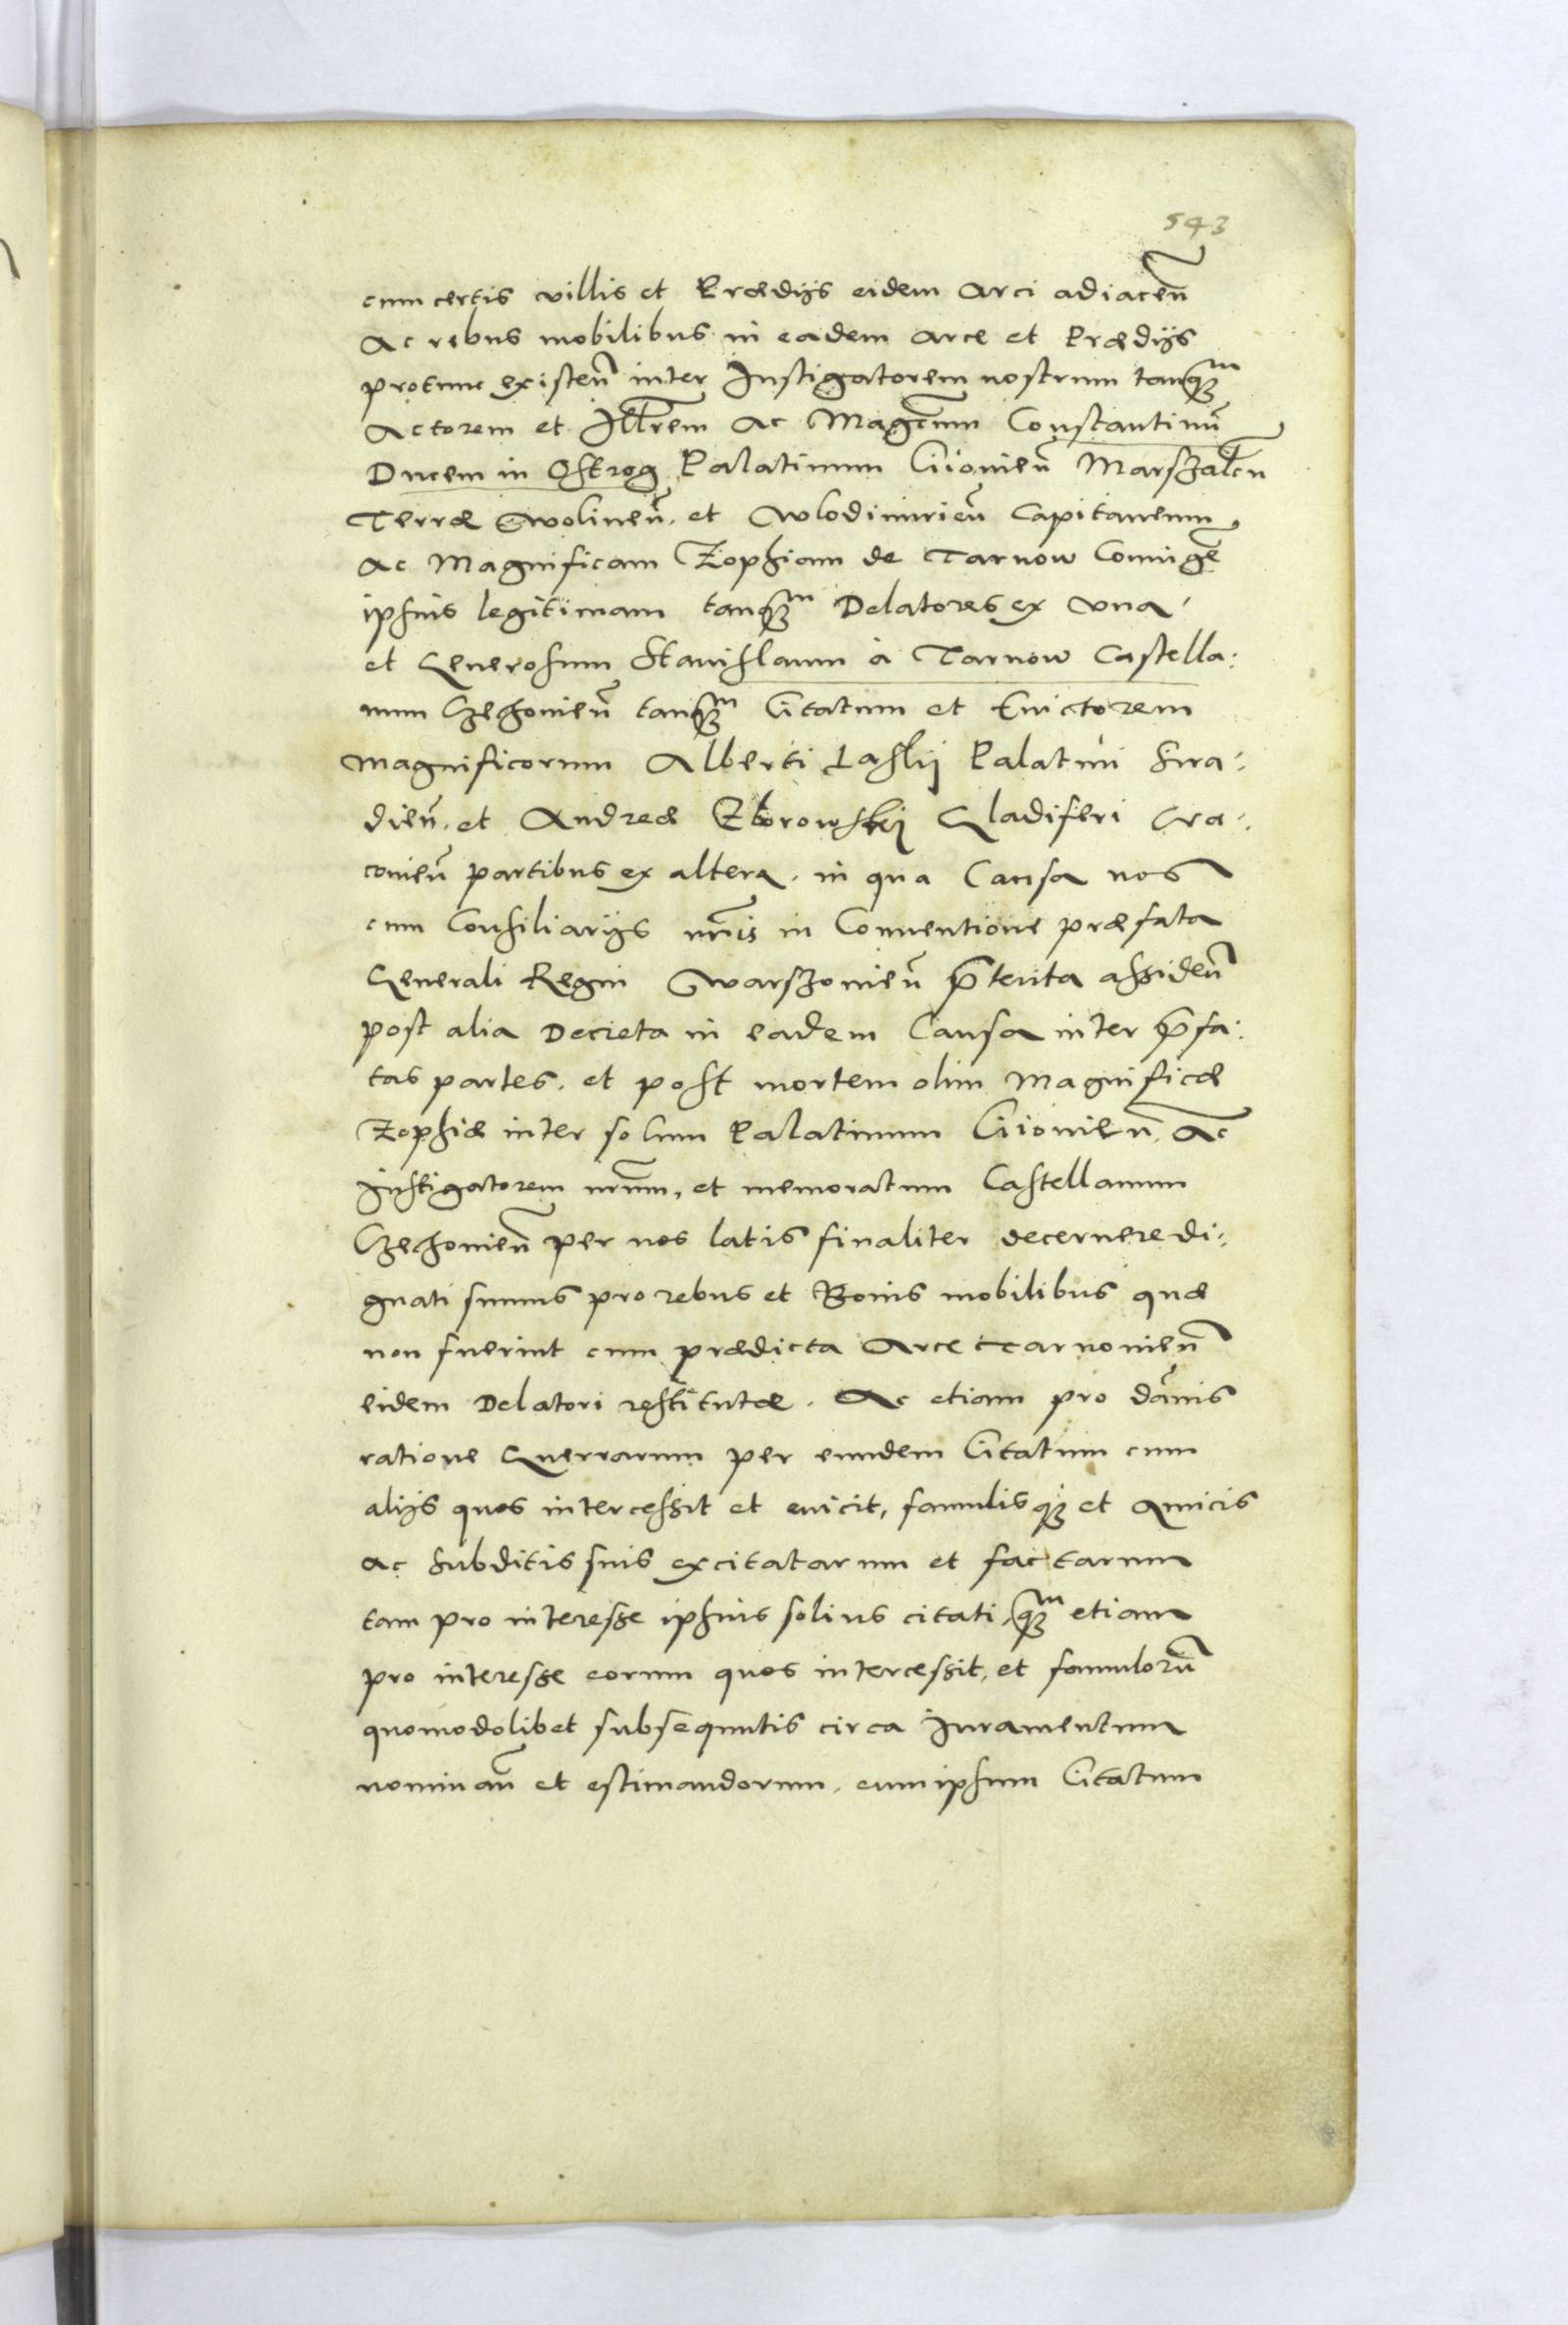 543
cum certis villis et Prædijs eidem Arci adiaceñ
Ac rebus mobilibus in eadem Arce et Prædijs
protunc existeñ inter Instigatorem nostrum tanq̃m
Actorem et Illrem Ac Magcum Constantinū
Ducem in Ostrog Palatinum Kiiovieñ Marszalcu
Terræ Wolineñ. et Wlodimirieñ Capitaneum,
Ac Magnificam Zophiam de Tarnow Coniugē
ipsius legitimam tanq̃m Delatores ex vna
et Generosum Stanislaum à Tarnow Castella:
num Czechovieñ tanq̃m Citatum et Evictorem
Magnificorum Alberti Laskij Palatini Sira:
dieñ. et Andreæ Zborowskij Gladiferi Cra:
covieñ partibus ex altera. in qua Causa nos
cum Consiliarijs nr̃is in Conventione præfata
Generali Regni Warszovieñ p̃tenta assideñ
post alia Decreta in eadem Causa inter p̃fa:
tas partes. et post mortem olim Magnificæ
Zophiæ inter solum Palatinum Kiiovieñ. Ac
Instigatorem nr̃um, et memoratum Castellanum
Czechovieñ per nos latis finaliter decernere di:
gnati sumus pro rebus et Bonis mobilibus quæ
non fuerint cum prædicta Arce Tarnovieñ
eidem Delatori restitutæ. Ac etiam pro dãnis
ratione Guerrarum per eundem Citatum cum
alijs quos intercessit et evicit, famulisq; et Amicis
ac subditis suis excitatarum et factarum
tam pro interesse ipsius solius citati, q̃m etiam
pro interesse eorum quos intercessit, et famulorū
quomodolibet subsequutis circa Iuramentum
nominañ et estimandorum. eum ipsum Citatum